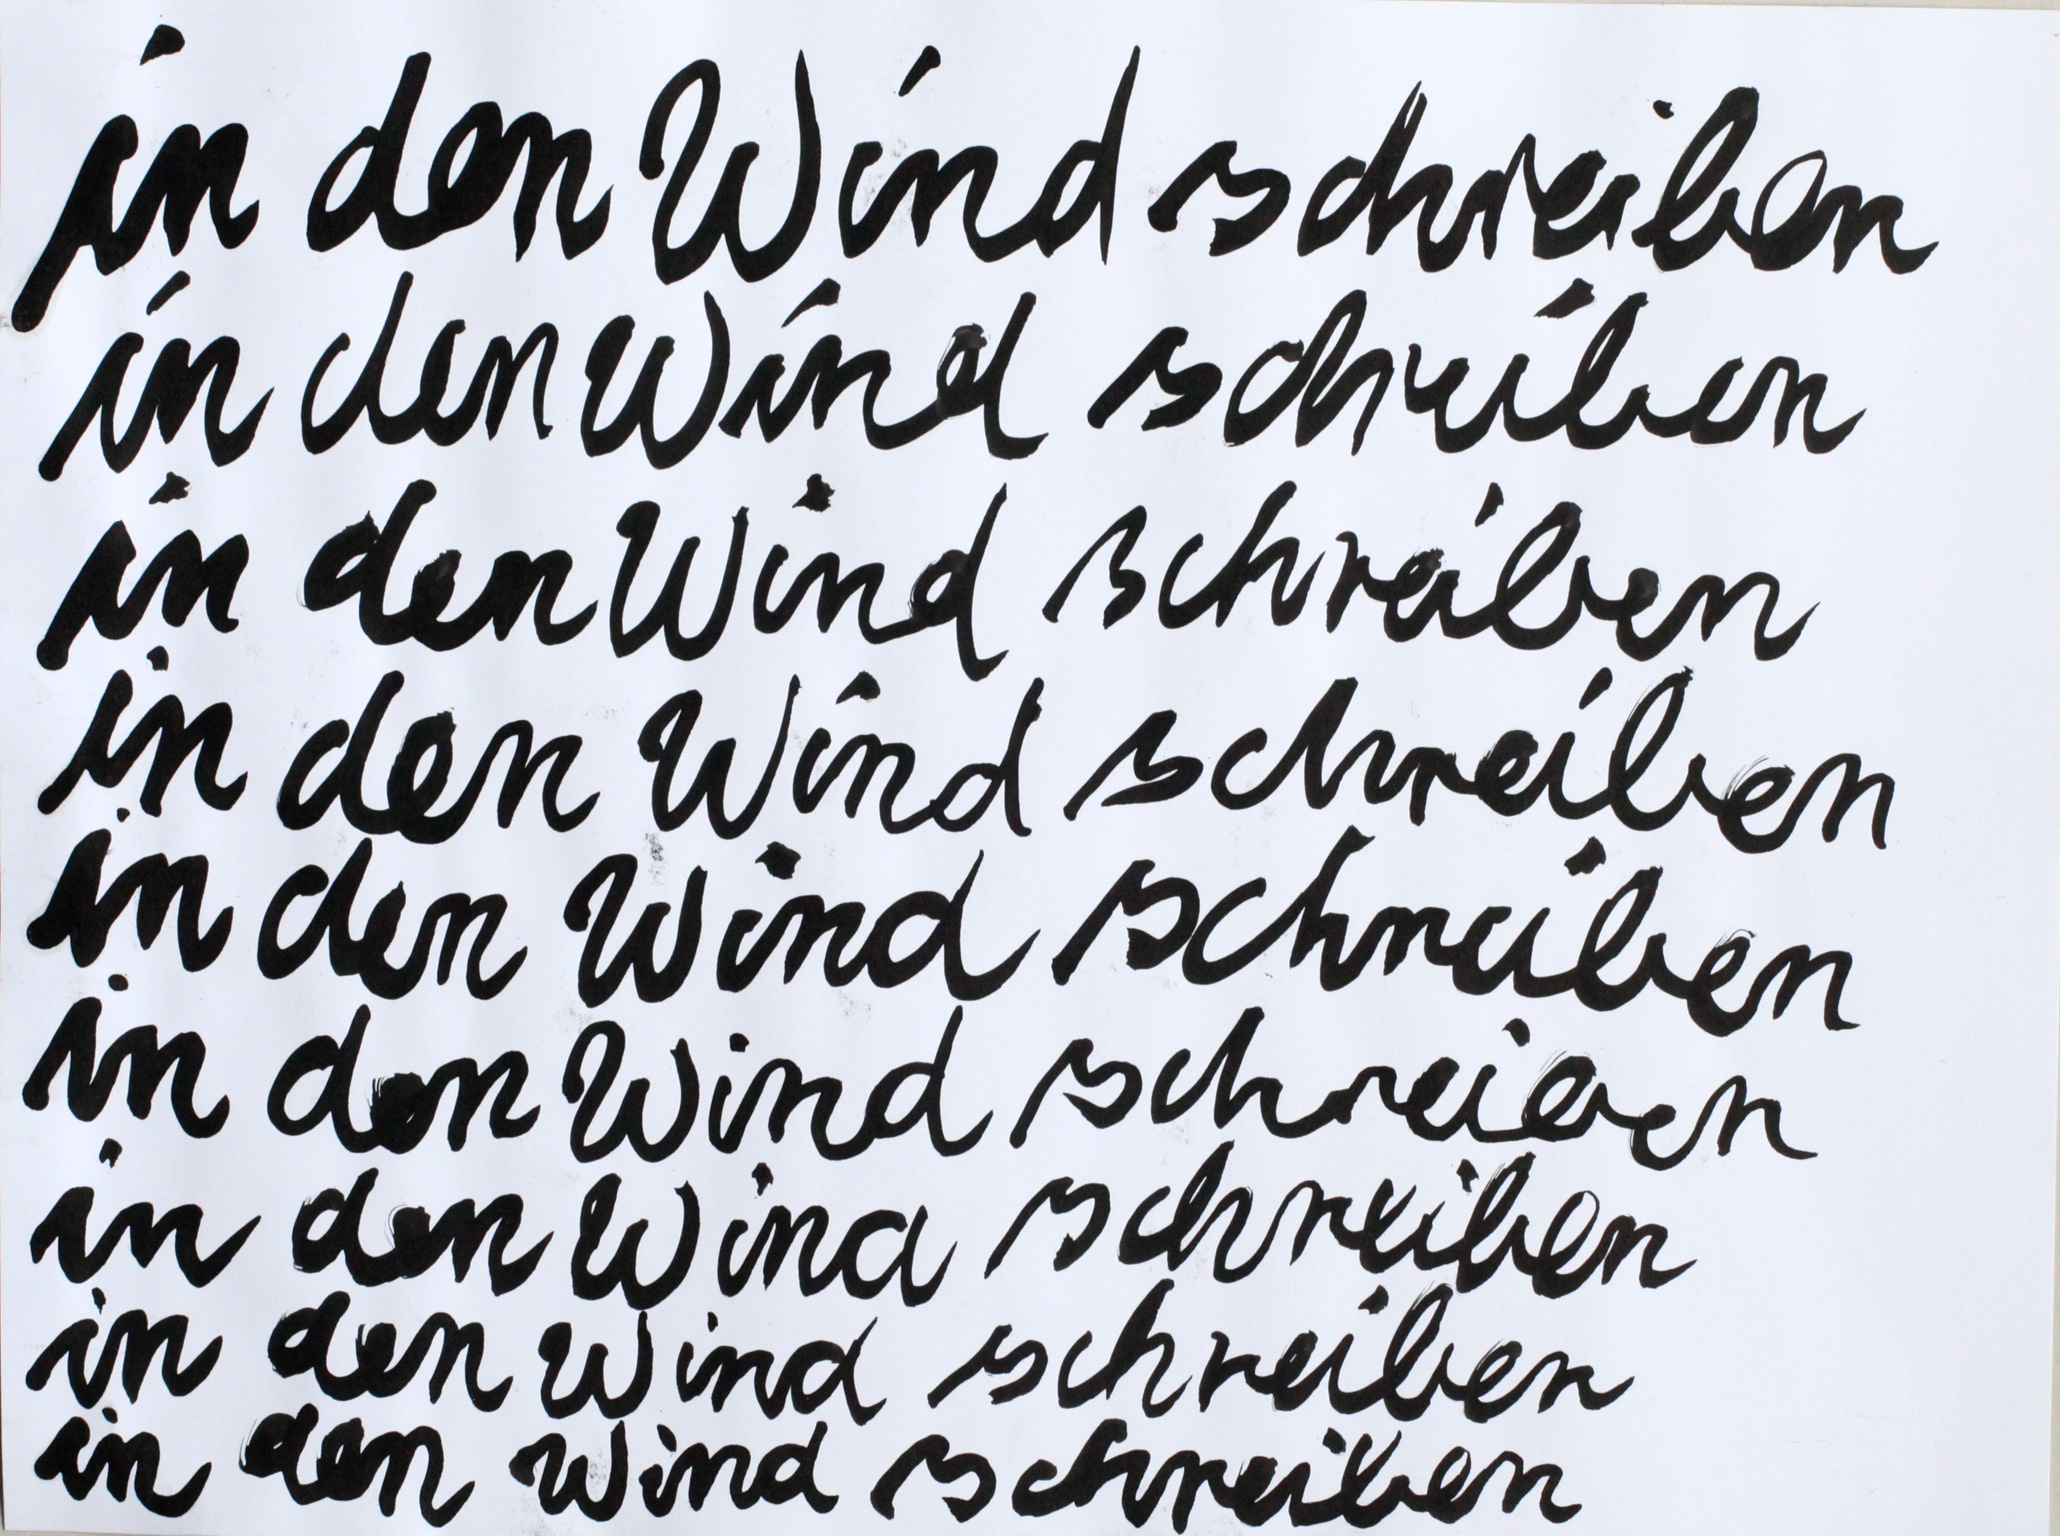 in den Wind schreiben
in den Wind schreiben
in den Wind schreiben
in den Wind schreiben
in den Wind schreiben
in den Wind schreiben
in den Wind schreiben
in den Wind schreiben
in den Wind schreiben